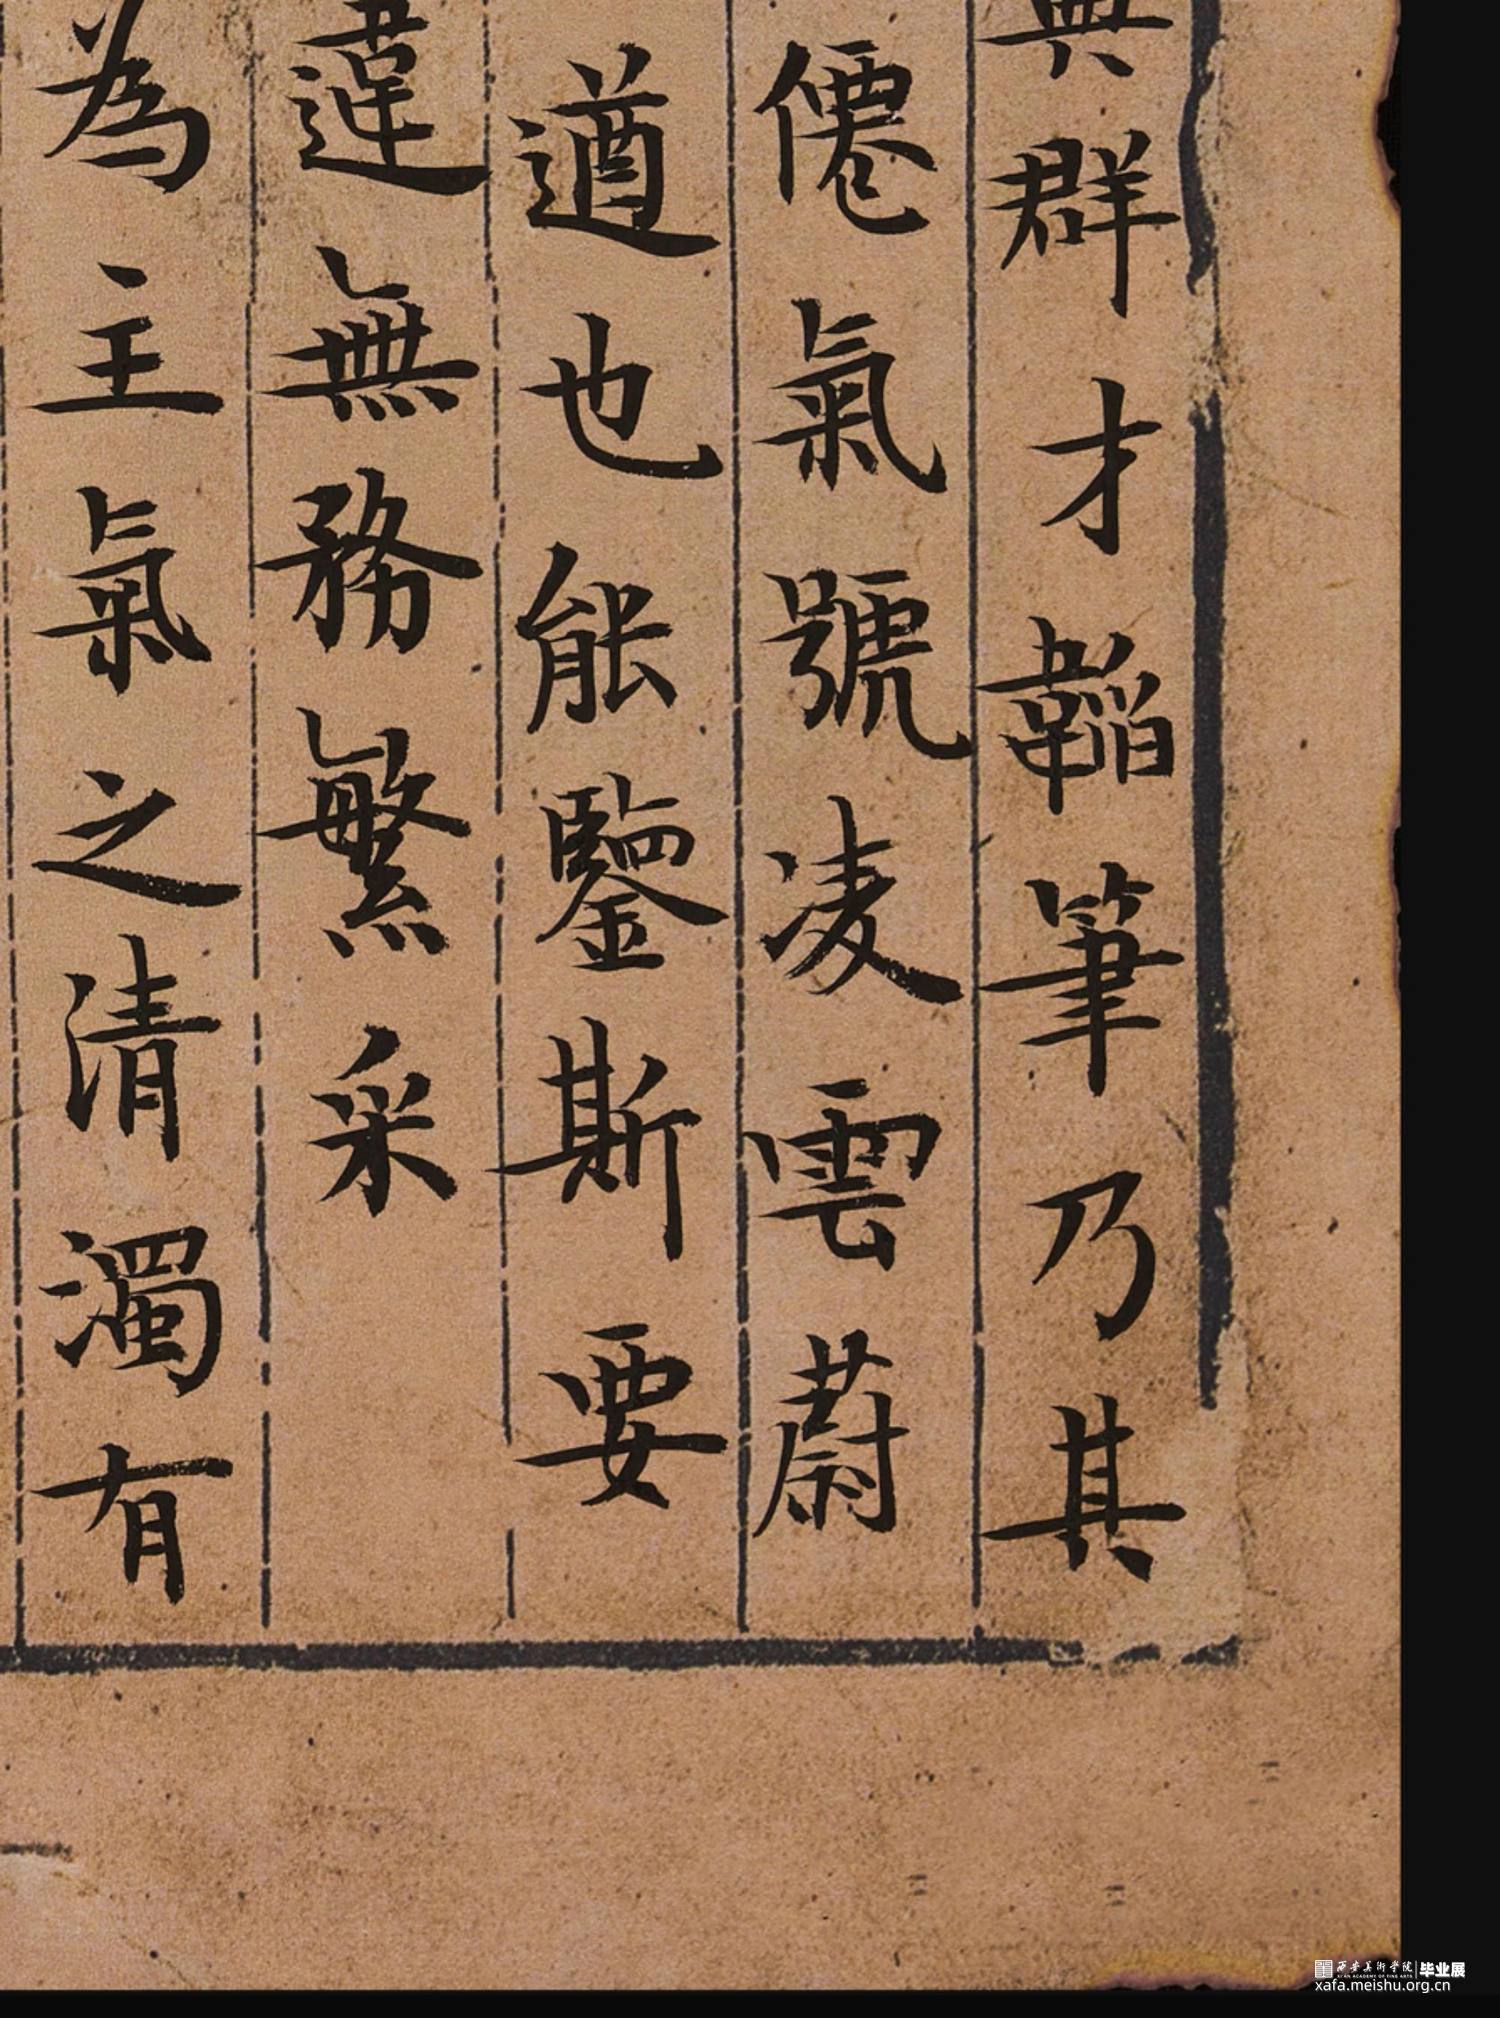 典群才韜筆乃其
僊氣號凌雲蔚
遒也能鑒斯要
違無務繁采
為主氣之清濁有
西安美術學院 毕业展
XI'AN ACADEMY OF FINE ARTS
xafa.meishu.org.cn